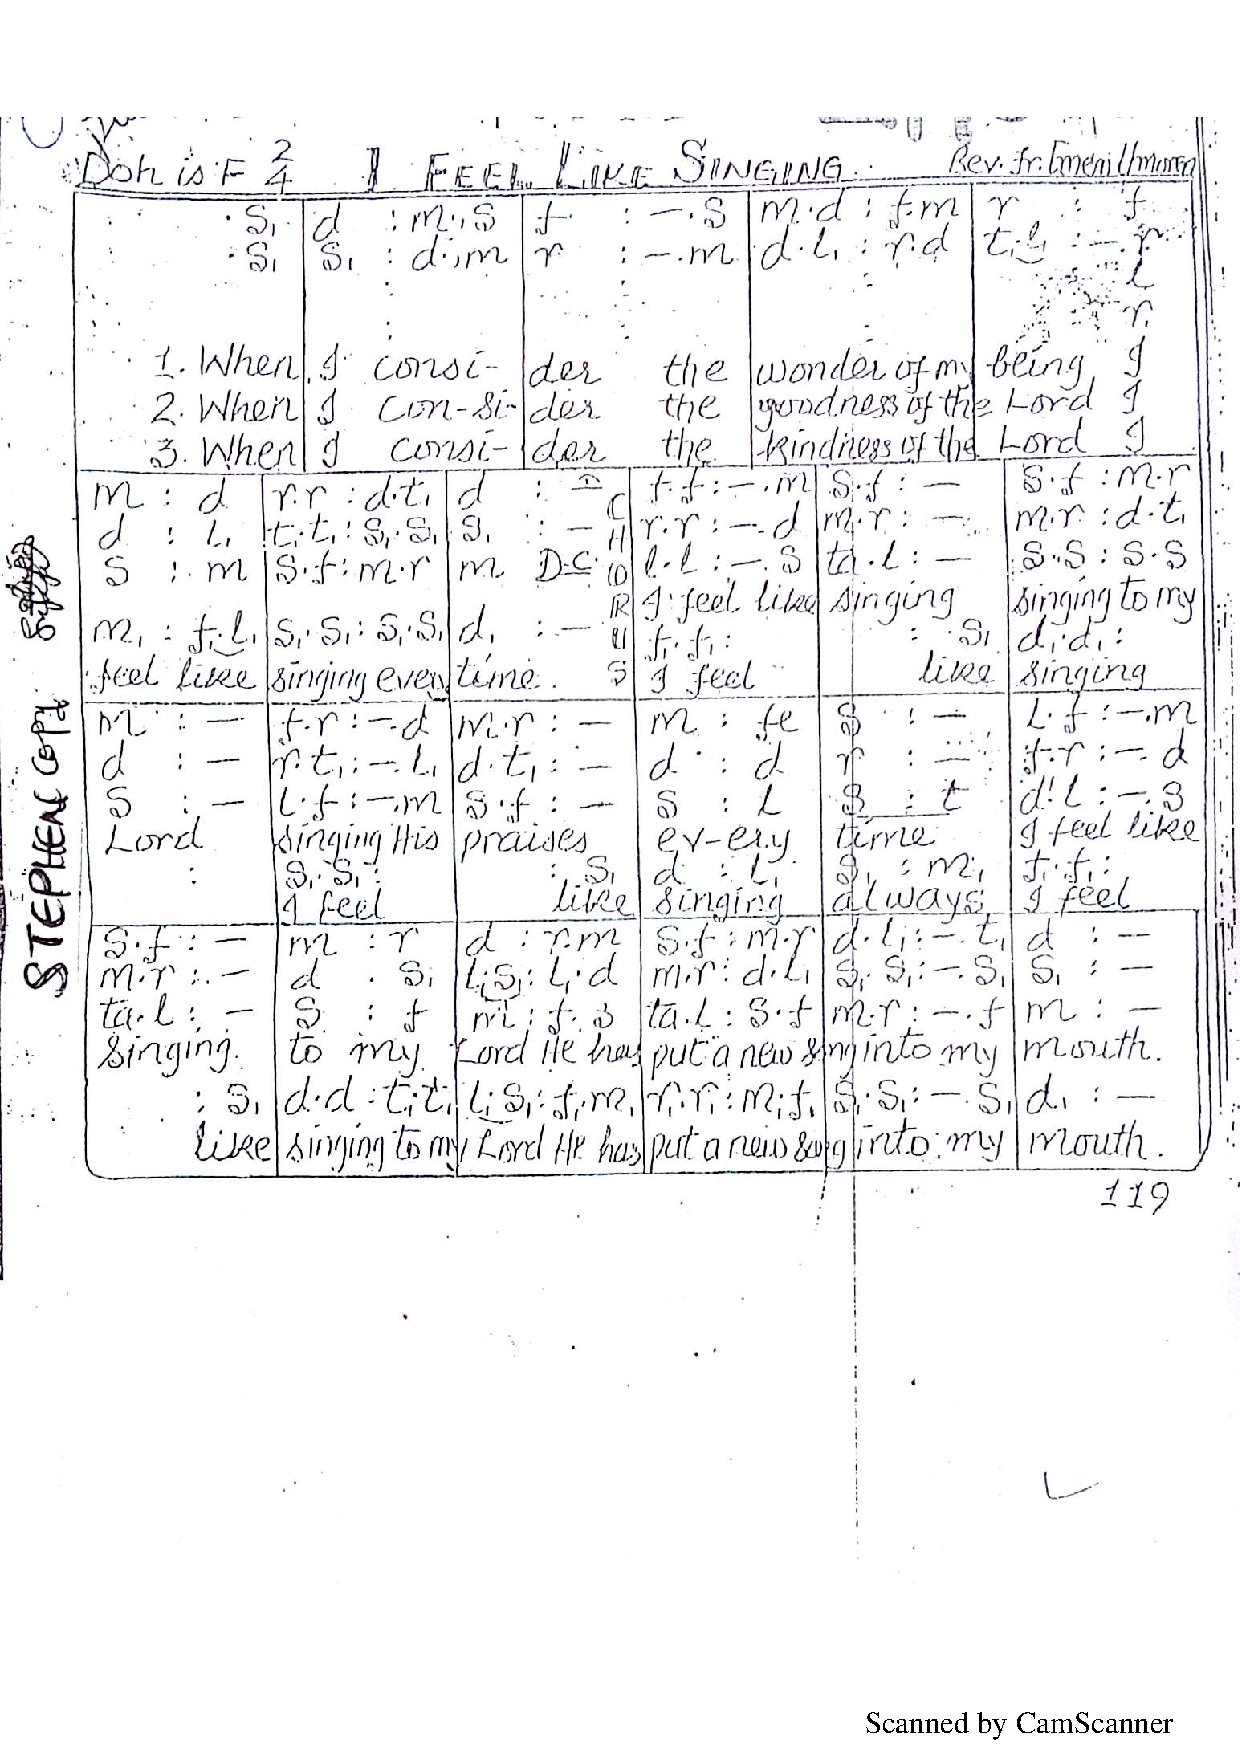 Doh is F 2/4 I FEEL LIKE SINGING. Rev. Fr.
: .s₁ | d : m.,s | f : –.s | m.d : f.m | r : f
: .s₁ | s₁ : d.,m | r : –.m | d.l₁ : r.d | t₁.l₁ : –.r
l
r₁
1. When I consi- der the wonder of my being I
2. When I con-si- der the goodness of the Lord I
3. When I consi- der the kindness of the Lord I
m : d | r.r : d.t₁ | d : – | f.f : –.m | s.f : – | s.f : m.r
d : l₁ | t₁.t₁ : s₁.s₁ | s₁ : – | r.r : –.d | m.r : – | m.r : d.t₁
s : m | s.f : m.r | m D.C | l.l : –.s | ta.l : – | s.s : s.s
CHORUS
I feel like singing singing to my
m₁ : f₁.l₁ | s₁.s₁ : s₁.s₁ | d₁ : – | f₁.f₁ : | : s₁ | d₁.d₁ :
feel like singing every time. I feel like singing
m : – | f.r : –.d | m.r : – | m : fe | s : – | l.f : –.m
d : – | r.t₁ : –.l₁ | d.t₁ : – | d : d | r : – | f.r : –.d
s : – | l.f : –.m | s.f : – | s : l | s : t | d'.l : –.s
Lord singing His praises ev-ery time I feel like
: | s₁.s₁ : | : s₁ | d : l₁ | s₁ : m₁ | f₁.f₁ :
I feel like singing always, I feel
s.f : – | m : r | d : r.m | s.f : m.r | d.l₁ : –.t₁ | d : –
m.r : – | d . s₁ | l₁.s₁ : l₁.d | m.r : d.l₁ | s₁.s₁ : –.s₁ | s₁ : –
ta.l : – | s : f | m : f.s | ta.l : s.f | m.r : –.f | m : –
singing. to my Lord He has put a new song into my mouth.
: s₁ | d.d : t₁.t₁ | l₁.s₁ : f₁.m₁ | r₁.r₁ : m₁.f₁ | s₁.s₁ : –.s₁ | d₁ : –
like singing to my Lord He has put a new song into my mouth.
119
STEPHEN COPY
Scanned by CamScanner